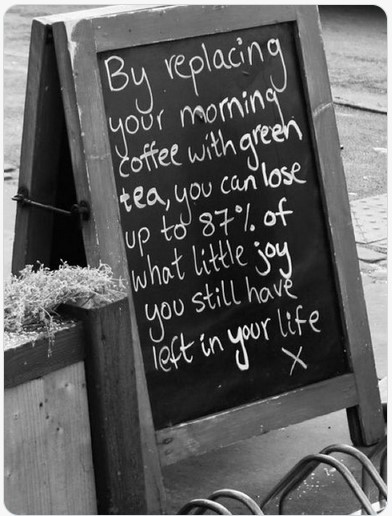 By replacing
your morning
coffee with green
tea, you can lose
up to 87% of
what little joy
you still have
left in your life
X